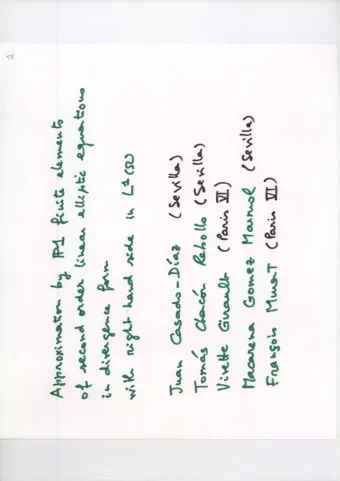 Approximation by P1 finite elements
of second order linear elliptic equations
in divergence form
with right-hand side in L¹(Ω)
Juan Casado-Díaz (Sevilla)
Tomás Chacón Rebollo (Sevilla)
Vivette Girault (Paris VI)
Macarena Gomez Marmol (Sevilla)
François Murat (Paris VI)